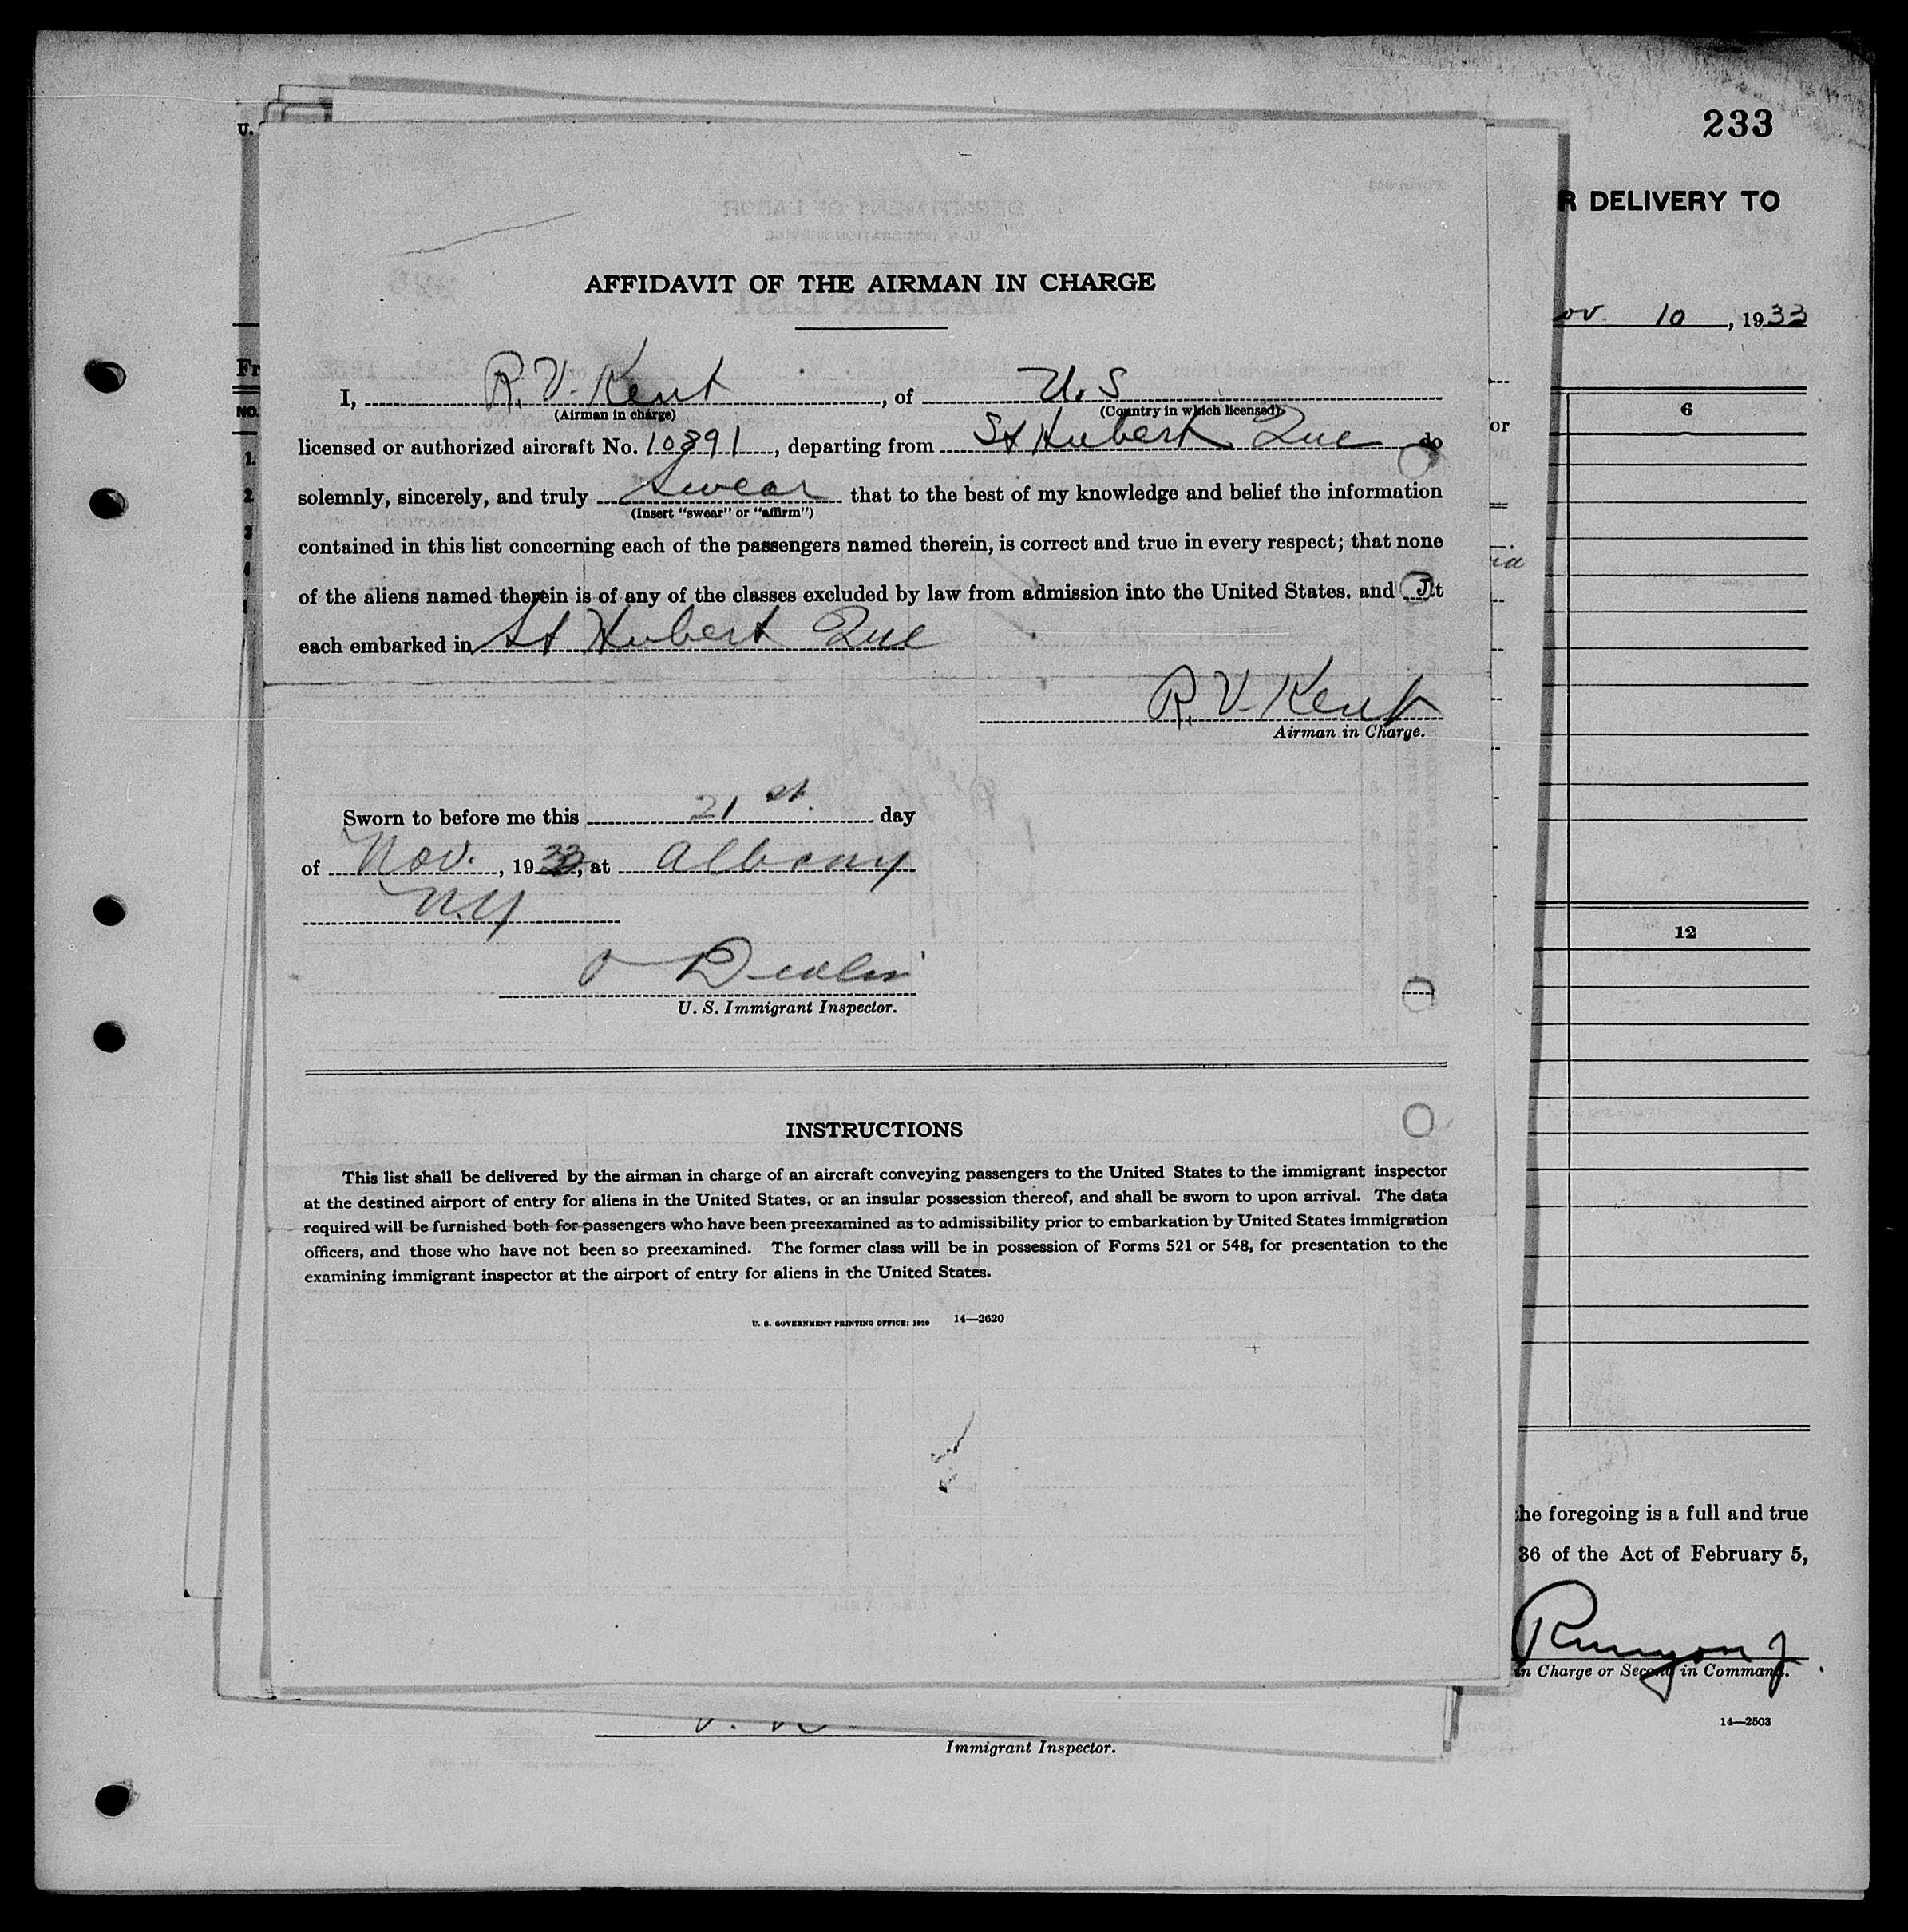 233
U.
R DELIVERY TO
AFFIDAVIT OF THE AIRMAN IN CHARGE
ov. 10, 1933
Fr
I, R. V. Kent, of U.S
(Airman in charge) (Country in which licensed)
NO.
6
licensed or authorized aircraft No. 10891, departing from St Hubert Que do
or
1.
2
solemnly, sincerely, and truly swear that to the best of my knowledge and belief the information
(Insert "swear" or "affirm")
3
contained in this list concerning each of the passengers named therein, is correct and true in every respect; that none
of the aliens named therein is of any of the classes excluded by law from admission into the United States. and
each embarked in St Hubert Que
R. V. Kent
Airman in Charge.
Sworn to before me this 21st. day
of Nov., 1933, at Albany
N.Y
12
U. S. Immigrant Inspector.
INSTRUCTIONS
This list shall be delivered by the airman in charge of an aircraft conveying passengers to the United States to the immigrant inspector
at the destined airport of entry for aliens in the United States, or an insular possession thereof, and shall be sworn to upon arrival. The data
required will be furnished both for passengers who have been preexamined as to admissibility prior to embarkation by United States immigration
officers, and those who have not been so preexamined. The former class will be in possession of Forms 521 or 548, for presentation to the
examining immigrant inspector at the airport of entry for aliens in the United States.
U. S. GOVERNMENT PRINTING OFFICE: 1929 14—2620
the foregoing is a full and true
36 of the Act of February 5,
Runyon J
in Charge or Second in Command.
14—2503
Immigrant Inspector.